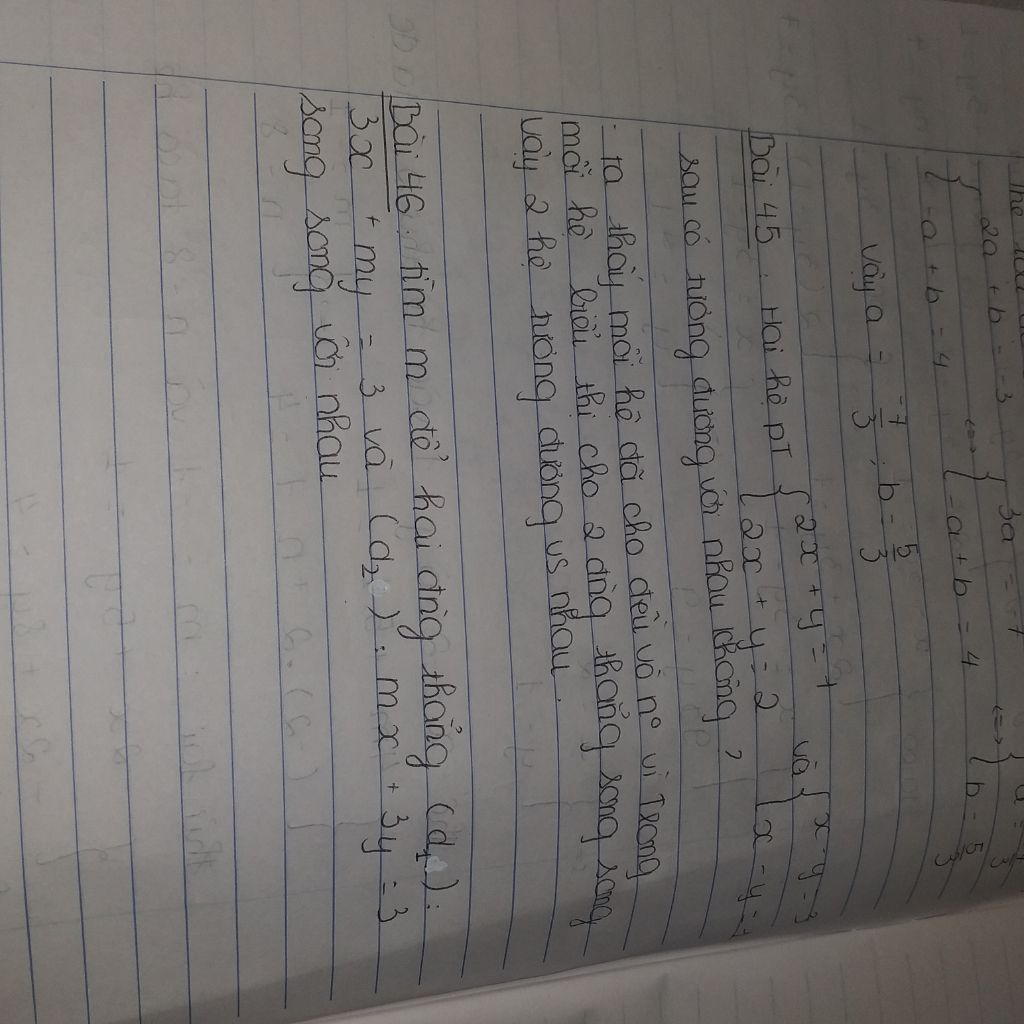 { 2a + b = -3 ⇔ { 3a = -7 ⇔ {
{ -a + b = 4 { -a + b = 4 { b = 5/3
Vậy a = -7/3 ; b = 5/3
Bài 45. Hai hệ PT { 2x + y = 1 và { x - y = 3
{ 2x + y = 2 { x - y = 1
sau có tương đương với nhau không ?
. ta thấy mỗi hệ đã cho đều vô nº vì Trong
mỗi hệ biểu thị cho 2 đtg thẳng song song
vậy 2 hệ tương đương vs nhau.
Bài 46. tìm m để hai đtg thẳng (d1):
3x + my = 3 và (d2): mx + 3y = 3
song song với nhau